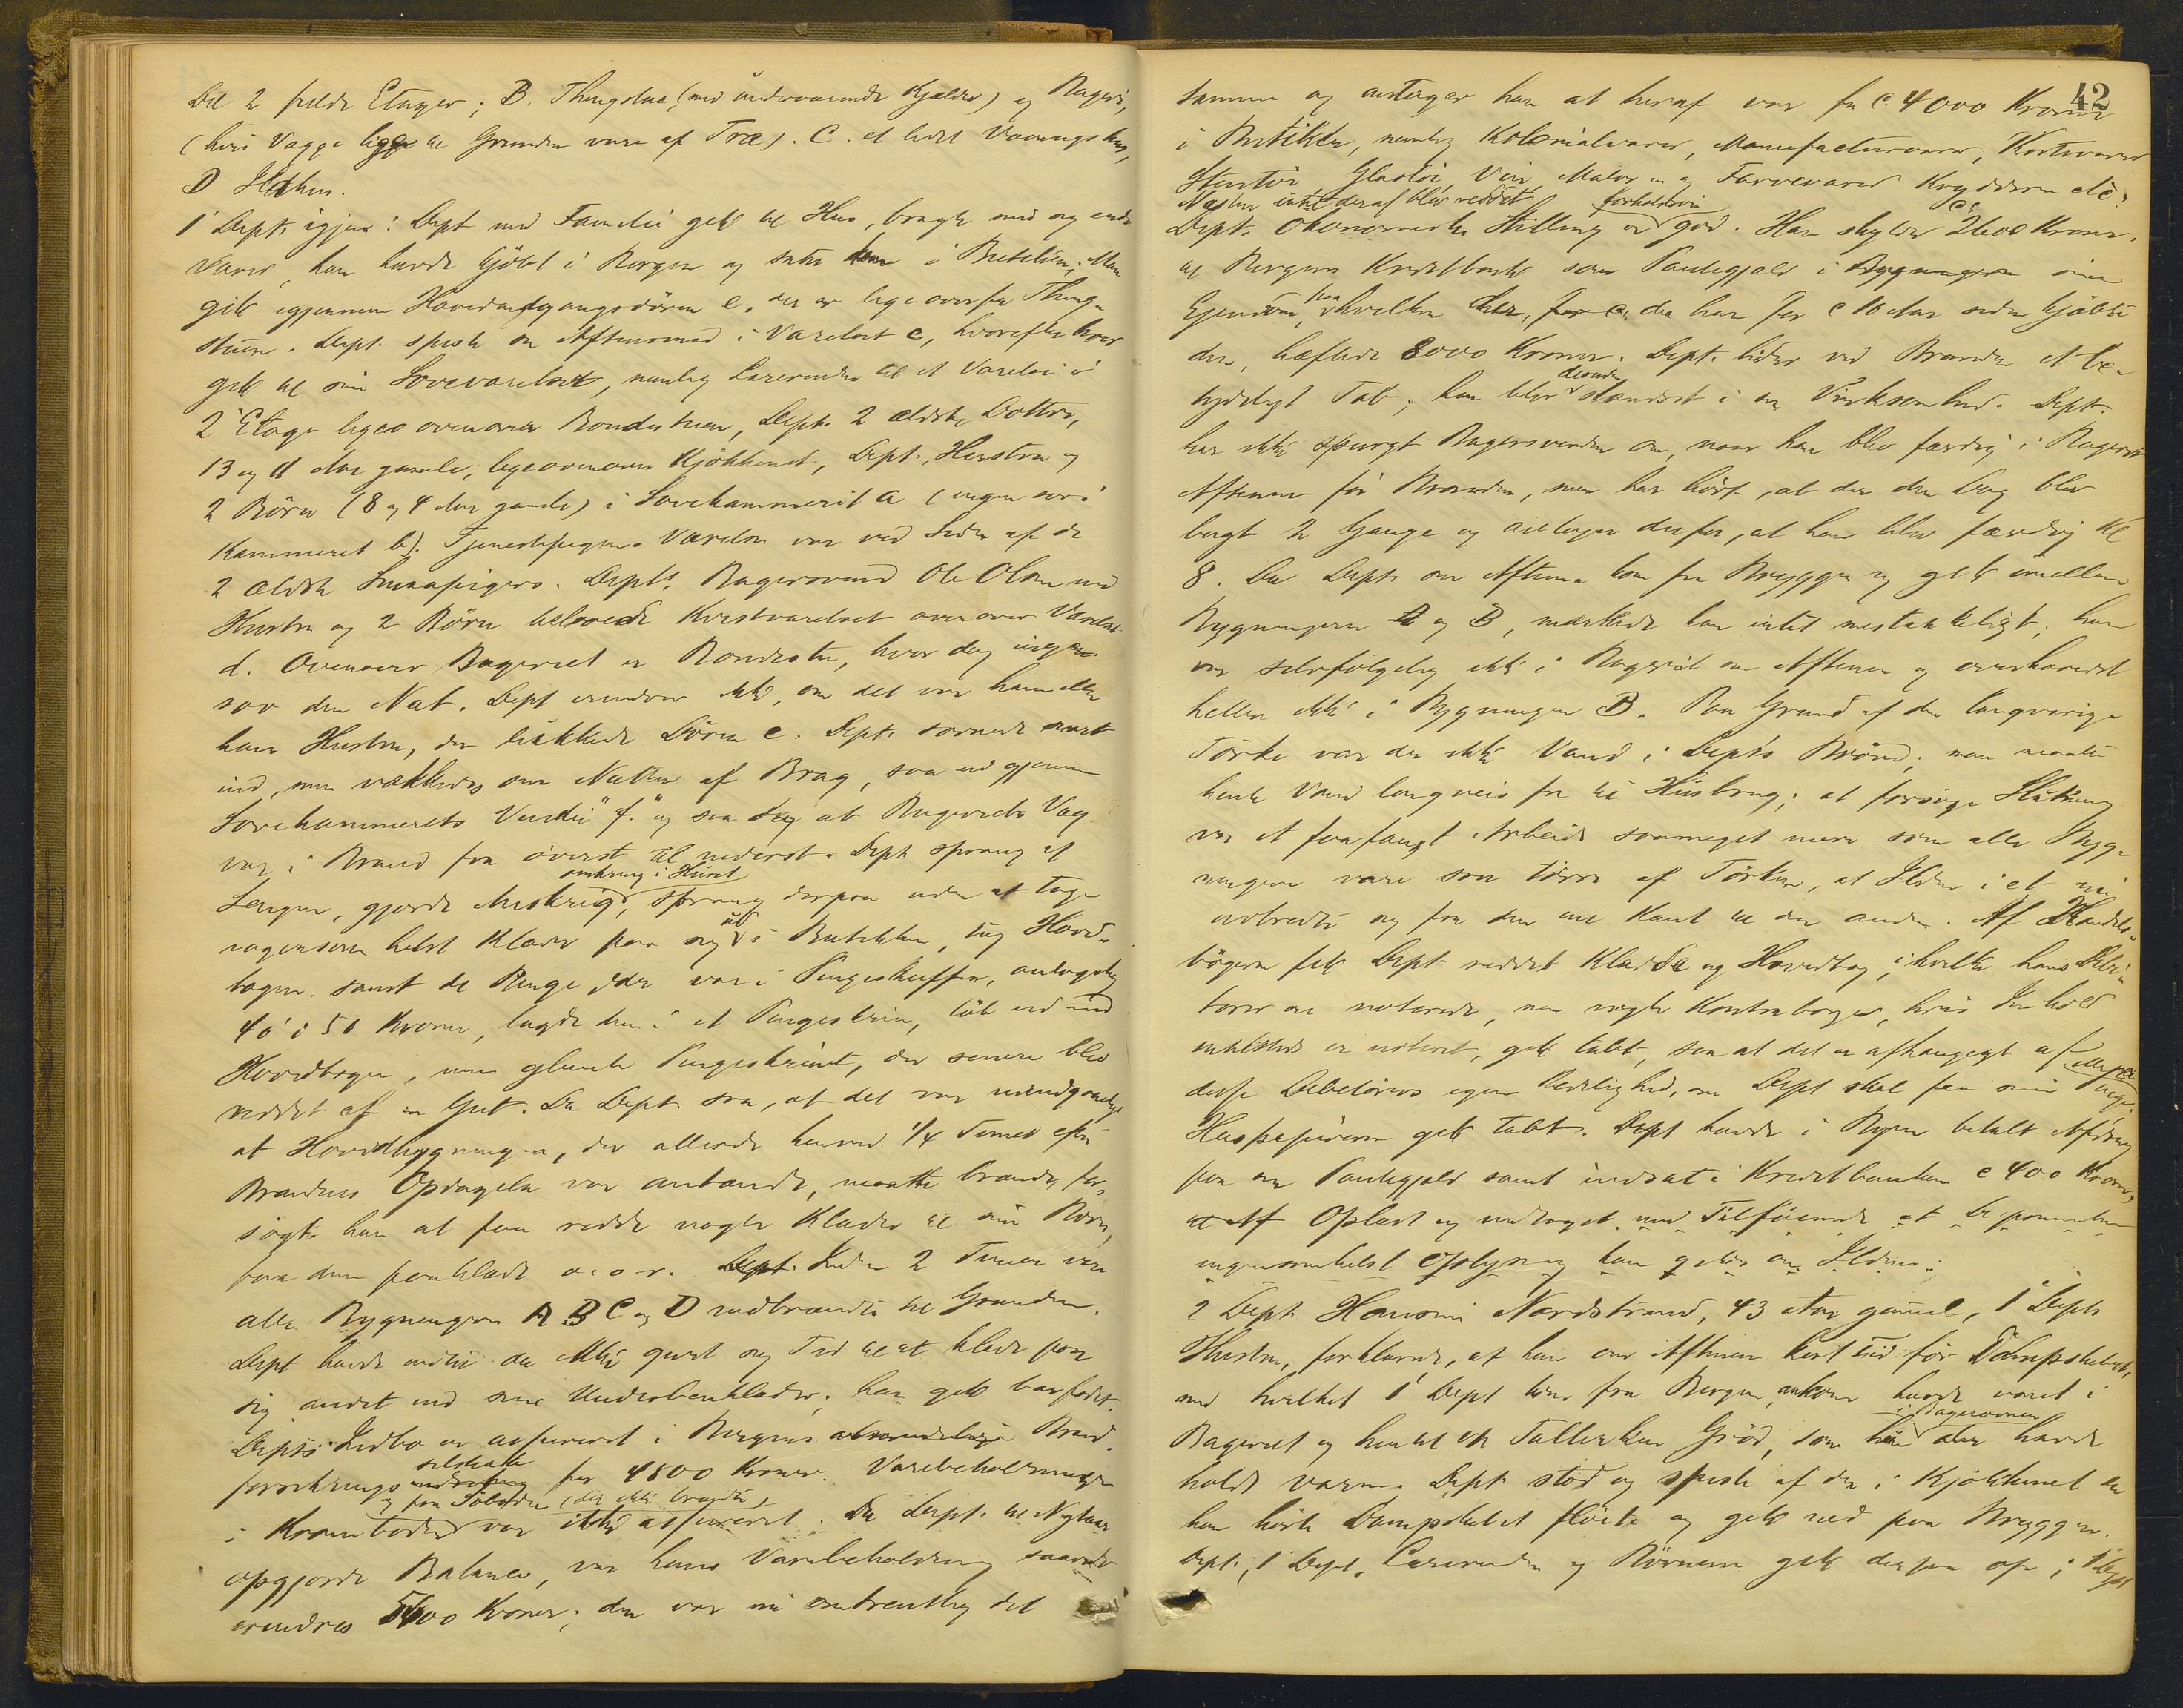 Del 2 fulde Etager; B. Thingstue, (med underværende Kjelder) og Bageri,
(hvis Vægge ligge til Grunden vare af Træ). C. et lidet Vaaningshus,
D Ildhus.
1 Dept. igjen: Dept med Familie gik til Hus, bragte med sig endel
Varer, han havde kjöbt i Bergen og satte dem i Butikken; Man
gik igjennem Hovedindgangsdören e. der er lige overfor Thing-
stuen. Dept. spiste sin Aftensmad i Værelset c, hvorefter hver
gik til sin Soveværelset, nemlig Læreren til et Værelse i
2 Etage lige ovenover Bondestuen, Depts. 2 ældste Döttre,
13 og 11 Aar gamle, lige ovenover Kjökkenet, Dept., Hustru og
2 Börn (8 og 4 Aar gamle) i Sovekammeret a (ingen sov i
Kammeret b). Tjenestepigens Værelse var ved Siden af de
2 ældste Smaapigers. Depts Bagersvend Ole Olsen med
Hustru og 2 Börn beboede Kvistværelset ovenover Værelset
d. Ovenover Bageriet er Bondestue, hvor dog ingen
sov den Nat. Dept erindrer ikke, om det var ham eller
hans Hustru, der lukkede Dören e. Dept. sovnede snart
ind, men vækkedes om Natten af Brag, saa ud gjennem
Sovekammerets Vindu "f." og saa at Bageriets Væg
var i Brand fra överst til nederst. Dept sprang af
Sengen, gjorde Anskrig omkring i Huset, sprang derpaa uden at tage
nogensomhelst Klæder paa sig ud i Butikken, tog Hoved-
bogen samt de Penge, der var i Pengeskuffen, antagelig
40 à 50 Kroner, lagde dem i et Pengeskrin, löb ud med
Hovedbogen, men glemte Pengeskrinet, der senere blev
reddet af en Gut. Da Dept. saa, at det var uundgaaeligt
at Hovedbygningen, der allerede henved 1/4 Times efter
Brandens Opdagelse var antændt, maatte brænde, for-
sögte han at faa redde nogle Klæder til sine Börn,
faa dem paaklædt o. s. v. Inden 2 Timer vare
alle Bygningerne A B C og D nedbrændte til Grunden.
Dept havde endnu da ikke givet sig Tid til at klæde paa
sig andet end sine Underbenklæder; han gik barfodet.
Depts Indbo er assureret i Bergens almindelige Brand-
forsikrings selskab for 4800 Kroner. Varebeholdningen
i Kramboden og paa Söboden (der ikke brændte) var ikke assureret. Da Dept. til Nytaar
opgjorde Balance, var hans Varebeholdning saavidt
erindres 5400 Kroner; der var nu omtrentlig det
42
samme og antager han at heraf var for c. 4000 Kroner
i Butiken, nemlig Kolonialvarer, Manufacturvarer, Kortevarer
Stentöi Glastöi Vin Maler- og Farvevarer Krydderier etc.
Næsten intet deraf blev reddet
Dept. ökonomiske Stilling er forholdsvis god. Han skylder ca 2600 Kroner
til Bergens Kreditbank som Pantegjæld i Bygningen sin
Ejendom, paa hvilken der, da han for c 10 Aar siden kjöbte
den, hæftede 8000 Kroner. Dept. lider ved Branden et be-
tydeligt Tab; han blev desuden standset i sin Virksomhed. Dept.
har ikke spurgt Bagersvenden om, naar han blev færdig i Bageriet
Aftenen för Branden, men har hört, at der den Dag blev
bagt 2 Gange og antager derfor, at han blev færdig Kl
8. Da Dept. om Aftenen kom fra Bryggen og gik imellem
Bygningerne A og B, mærkede han intet mistænkeligt; han
var selvfölgelig ikke i Bageriet om Aftenen og overhovedet
heller ikke i Bygningen B. Paa Grund af den langvarige
Törke var der ikke Vand i Dept's Brönd; man maatte
hente Vand langveis fra til Husbrug; at forsöge Slukning
var et forfængt Arbeide saameget mere som alle Byg-
ningerne vare saa törre af Törken, at Ilden i et nu
udbredte sig fra den ene Kant til den anden. Af Handels-
bögerne fik Dept. reddet Kladde og Hovedbog, i hvilke hans Debi-
torer ere noterede, men nogle Kontraböger, hvis Indhold
enkeltvis er noteret, gik tabt, saa at det er afhængigt af
disse Debitorers egen Redelighed, om Dept skal faa sine Penge.
Huspapirerne gik tabt. Dept havde i Byen betalt Afdrag
paa sin Pantegjæld samt indsat i Kreditbanken c 400 Kroner,
Oplæst og vedtaget med Tilföiende at Deponenten
ingensomhelst Oplysning kan give om Ilden.
2 Dept Hansine Nordstrand, 43 Aar gammel, 1 Depts
Hustru, forklarede, at hun om Aftenen kort tid för Dampskibet,
med hvilket 1 Dept kom fra Bergen, ankom havde været i
Bageriet og hentet en Tallerken Gröd, som hun der i Bagerovnen havde
holdt varm. Dept stod og spiste af den i Kjökkenet da
hun hörte Dampskibet flöite og gik ned paa Bryggen.
Dept, 1 Dept, Læreren og Börnene gik derpaa op; 1 Dept